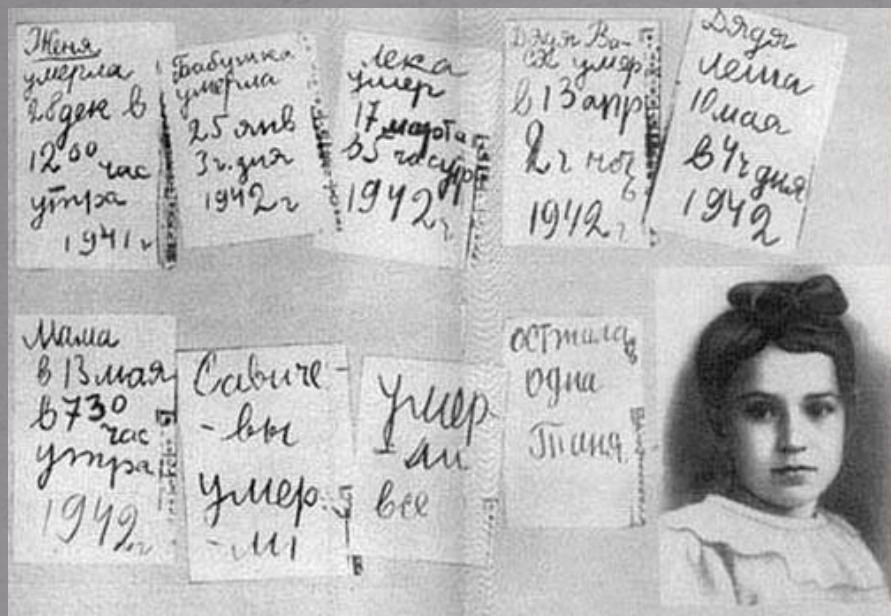 Женя
умерла
28 дек в
12 00 час
утра
1941 г
Бабушка
умерла
25 янв
3 ч. дня
1942 г
Лека
умер
17 марта
в 5 час утр
1942 г
Дядя Ва-
ся умер
в 13 апр
2 ч ноч
1942 г
Дядя
Леша
10 мая
в 4 ч дня
1942
Мама
в 13 мая
в 7 30
час
утра
1942 г
Савиче-
-вы
умер.
-ли
умер
-ли
все
осталась
одна
Таня.